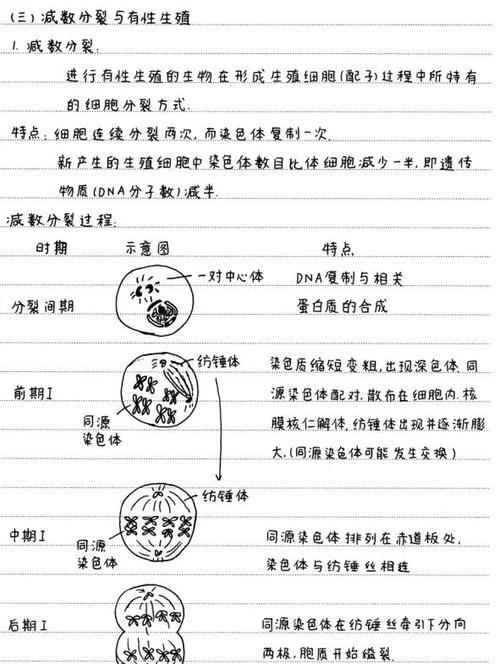 (三) 减数分裂与有性生殖
1. 减数分裂.
进行有性生殖的生物在形成生殖细胞(配子)过程中所特有
的细胞分裂方式.
特点: 细胞连续分裂两次, 而染色体复制一次.
新产生的生殖细胞中染色体数目比体细胞减少一半, 即遗传
物质(DNA分子数)减半.
减数分裂过程:
时期 示意图 特点
一对中心体
分裂间期
DNA复制与相关
蛋白质的合成
纺锤体
前期I
同源
染色体
染色质缩短变粗, 出现深色体. 同
源染色体配对, 散布在细胞内. 核
膜核仁解体, 纺锤体出现并逐渐膨
大.(同源染色体可能发生交换)
纺锤体
中期I
同源
染色体
同源染色体排列在赤道板处,
染色体与纺锤丝相连
后期I
同源染色体在纺锤丝牵引下分向
两极, 胞质开始缢裂.